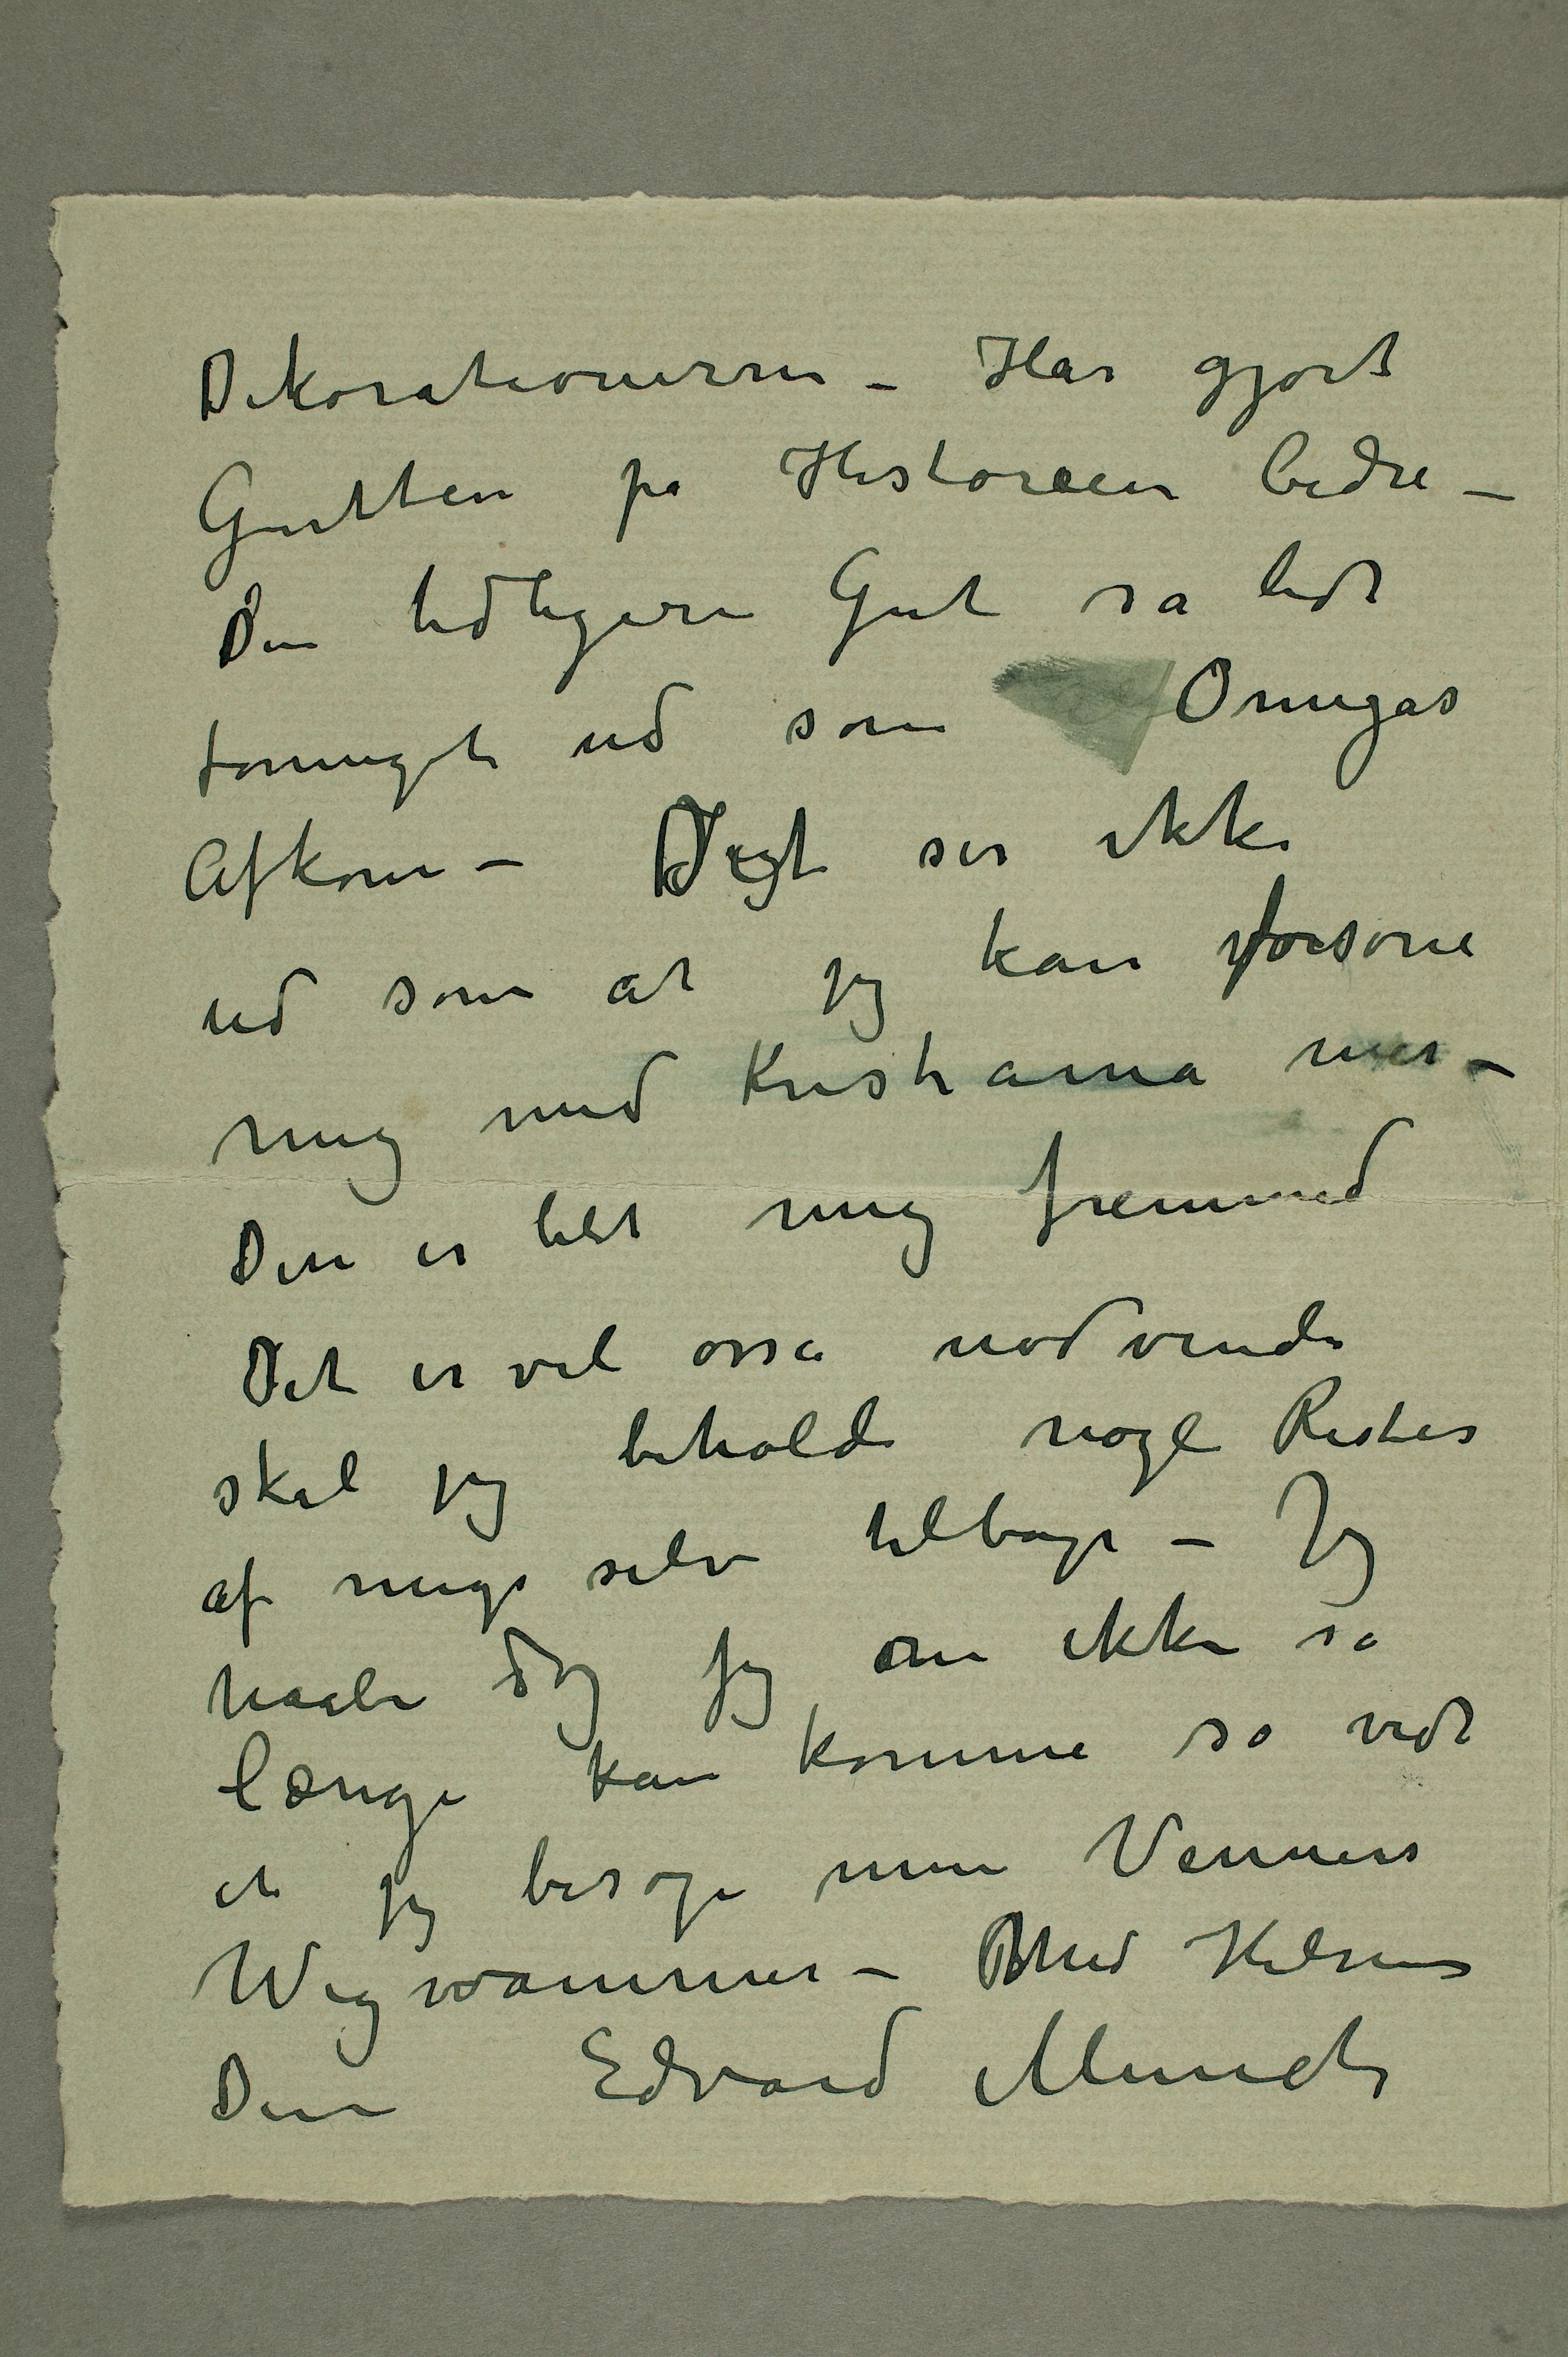 Dekorationerne – Har gjort
Gutten på Historien bedre –
Den tidligere Gut så lidt
forniget ud som Omegas
Afkom – Det ser ikke
ud som at jeg kan forsone
mig med Kristiania mer –
Den er blet mig fremmed
Det er vel osså nødvendi
skal jeg beholde nogle Rester
af mig selv tilbage – Jeg
haaber dog jeg om ikke så
længe kan komme så vidt
at jeg besøge mine Venners
Wigwammer – Med Hilsen
Din Edvard Munch